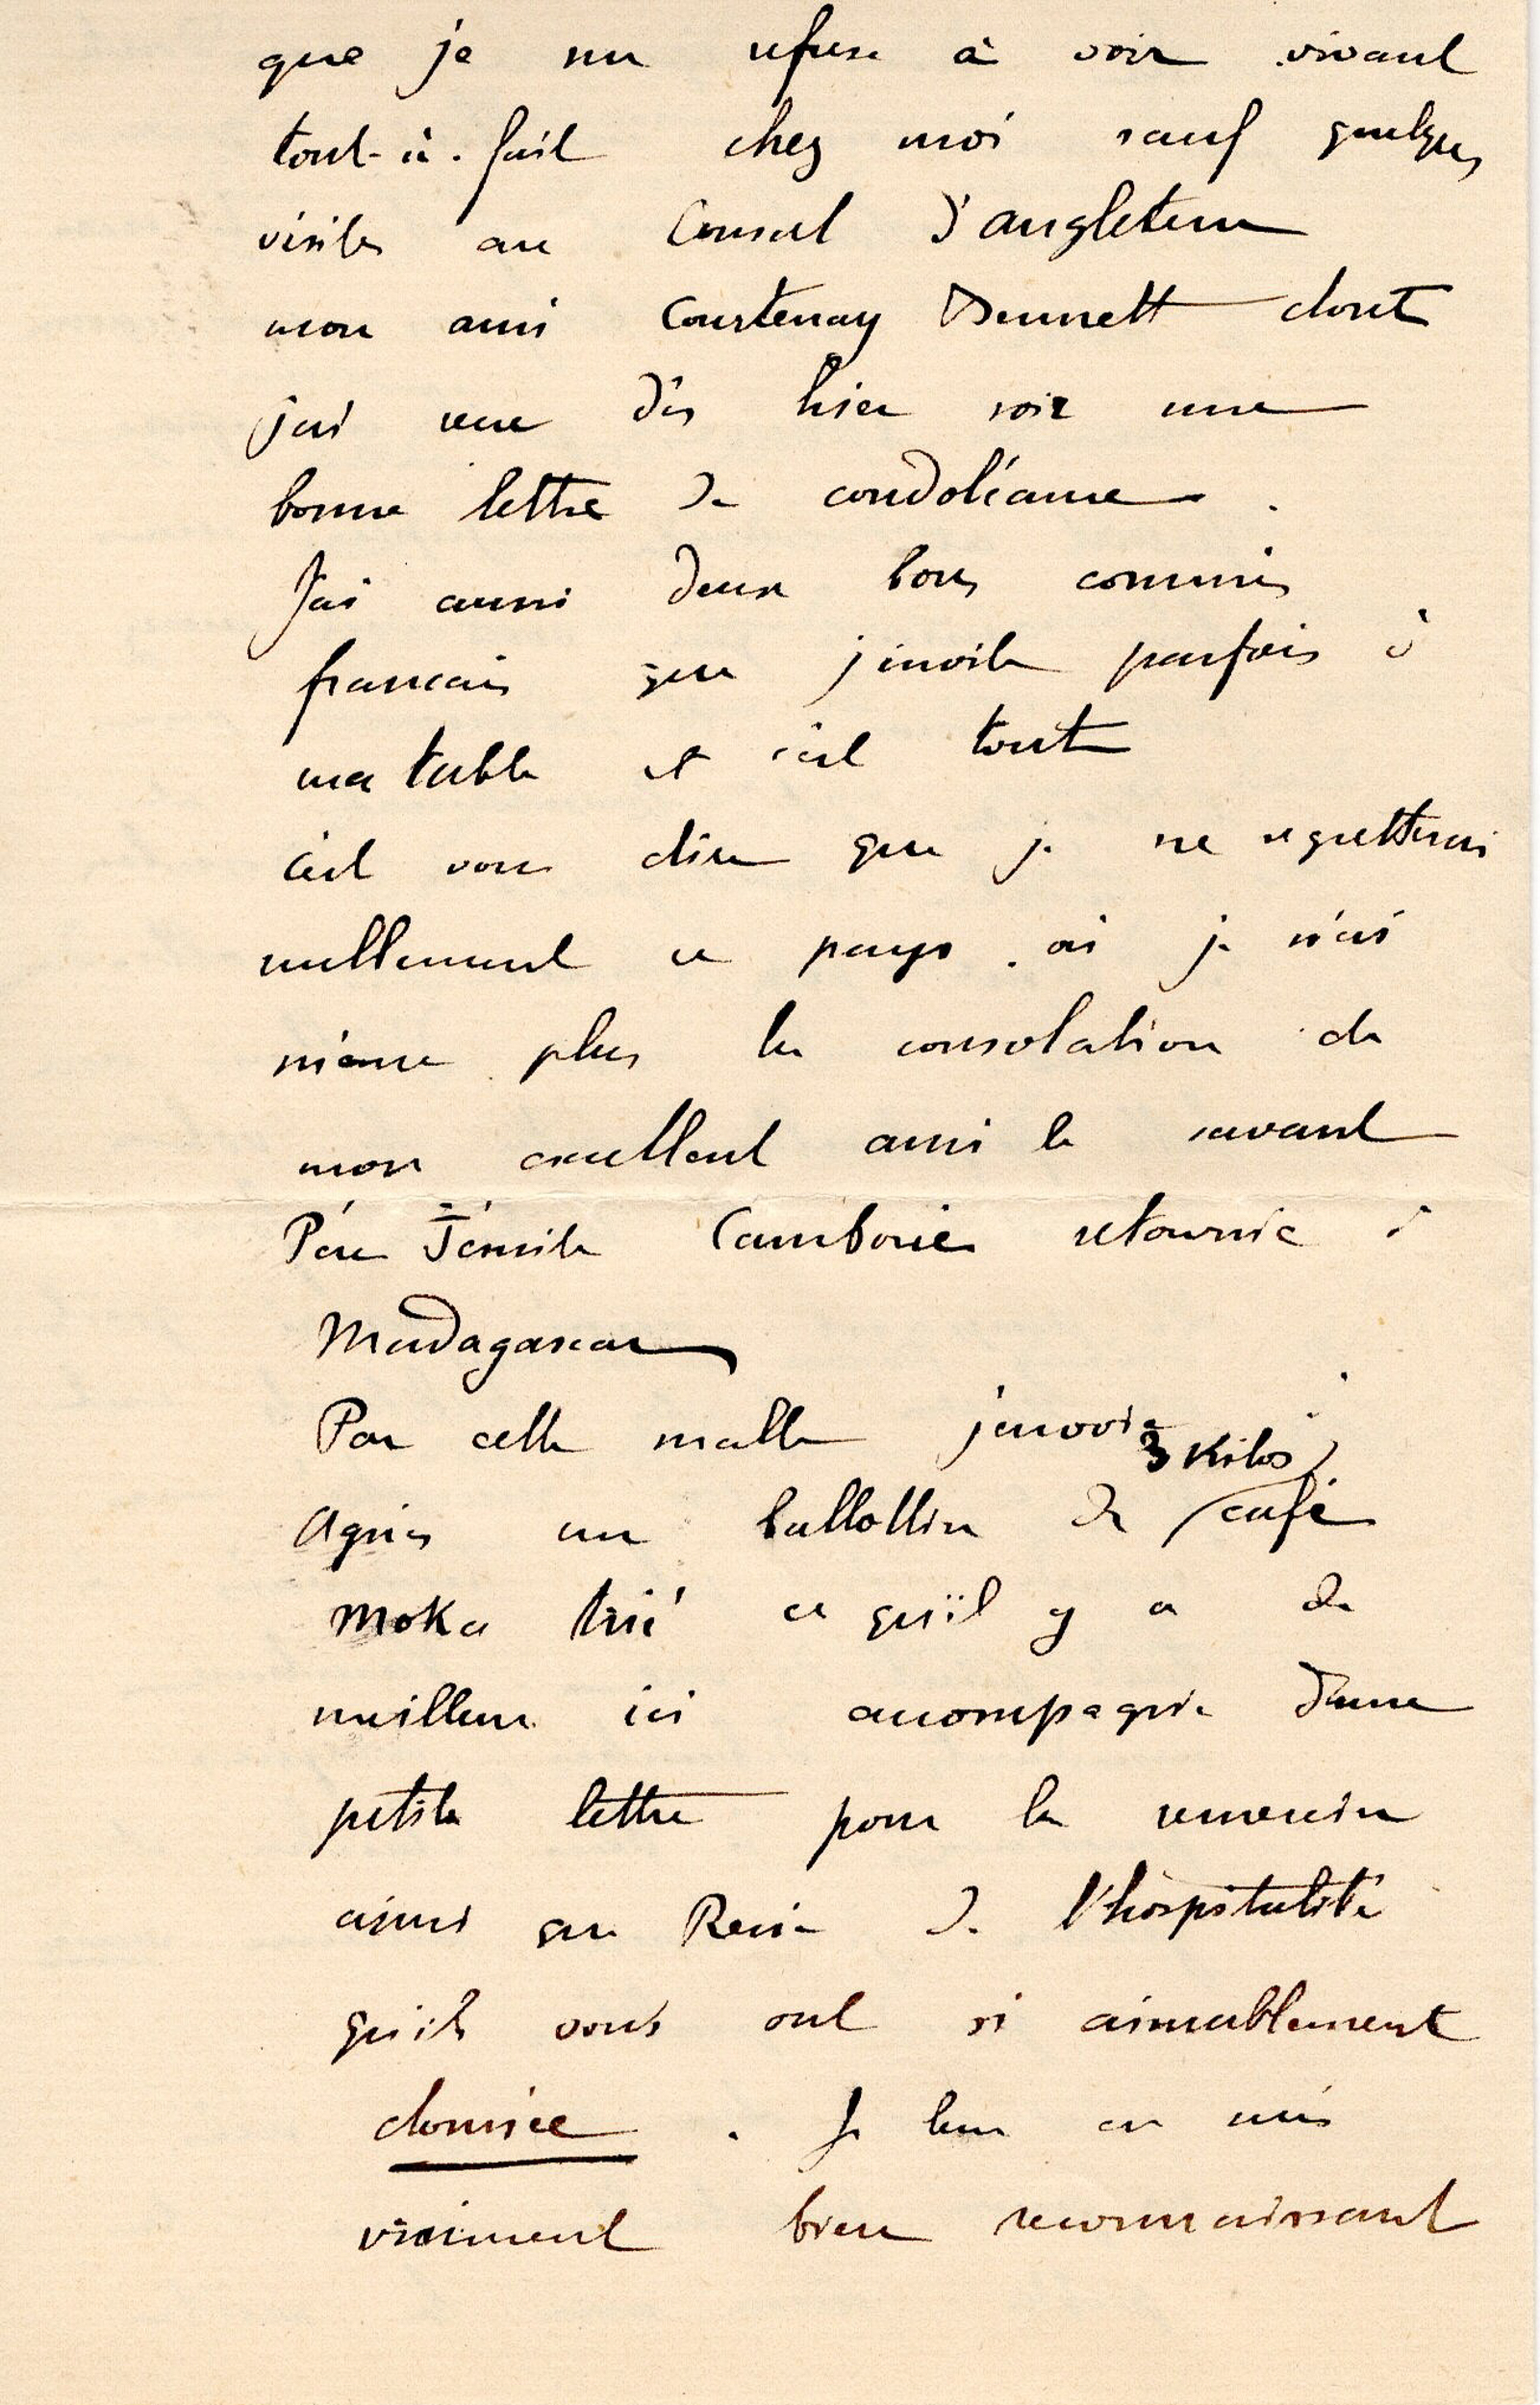 que je me refuse à voir vivant
tout-à-fait chez moi sauf quelques
visites au Consul d'angleterre
mon ami Courtenay Bennett dont
j'ai reçu dès hier soir une
bonne lettre de condoléance.
J'ai aussi deux bons commis
francais que j'invite parfois à
ma table et c'est tout
C'est vous dire que je ne regretterai
nullement ce pays où je n'ai
même plus la consolation de
mon excellent ami le savant
Père Jésuite Camboué retourné à
Madagascar
Par cette malle j'envoie à
Agnès un ballottin de 3 Kilos café
Moka trié ce qu'il y a de
meilleur ici accompagné d'une
petite lettre pour la remercier
ainsi que René de l'hospitalité
qu'ils vous ont si aimablement
donnée. Je leur en suis
vraiment bien reconnaissant